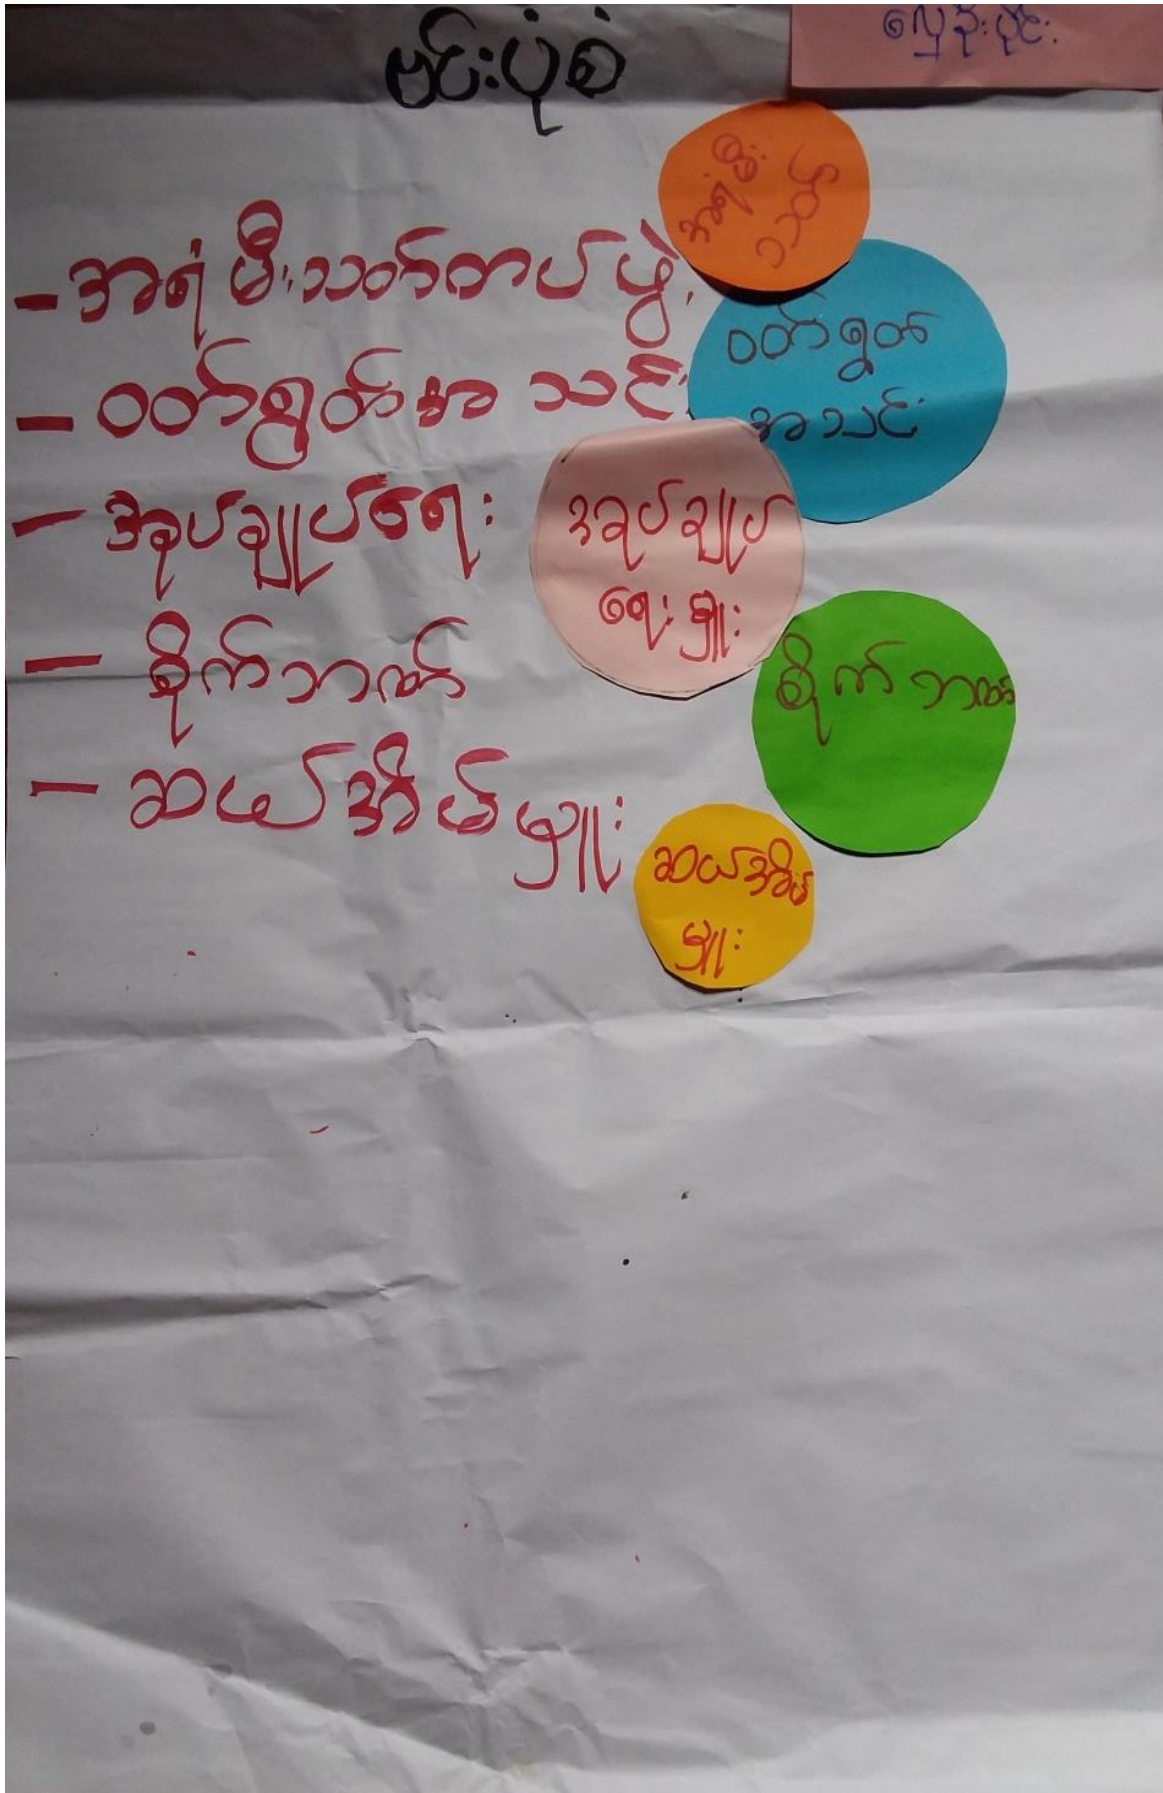 ဗင်းပုံစံ
လှေဦးပိုင်း
- အရံမီးသတ်တပ်ဖွဲ့
- ဝတ်ရွတ်အသင်း
- အုပ်ချုပ်ရေး
- စိုက်ဘဏ်
- ဆယ်အိမ်မှူး
အရံမီး
သတ်
ဝတ်ရွတ်
အသင်း
အုပ်ချုပ်
ရေးမှူး
စိုက်ဘဏ်
ဆယ်အိမ်
မှူး